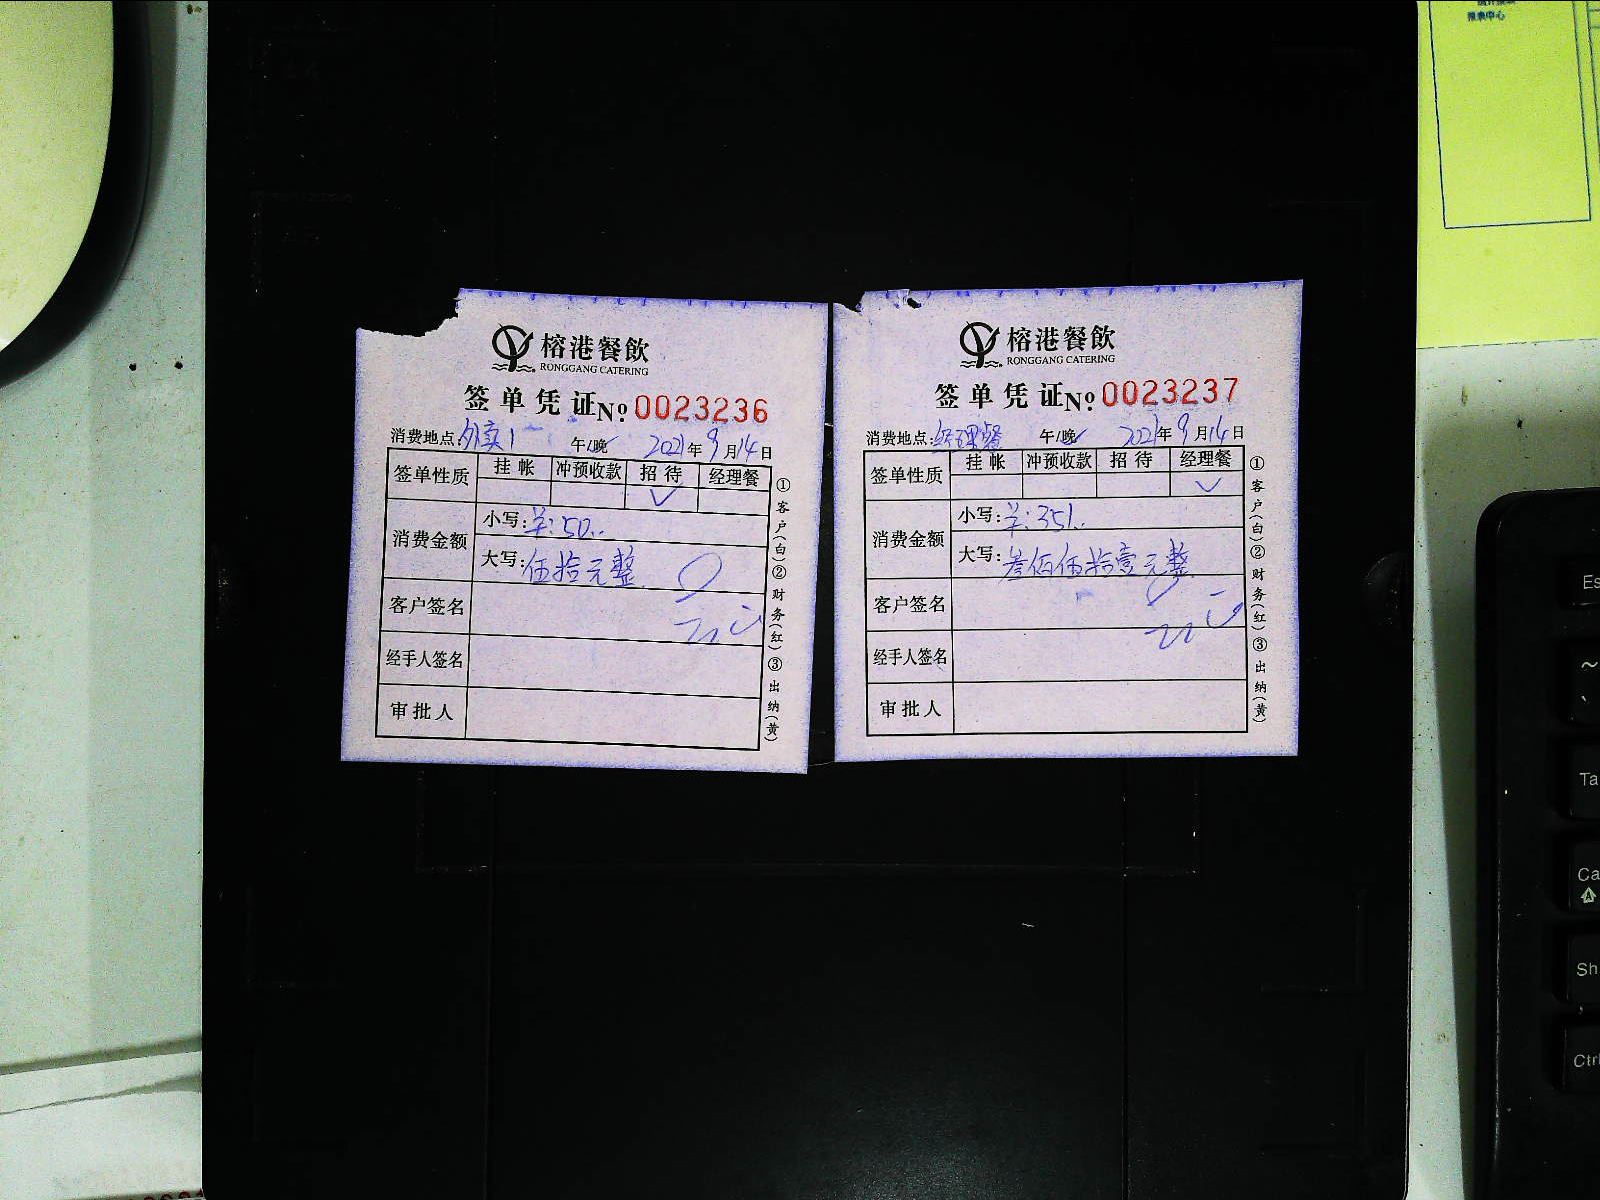 报表中心
榕港餐飲
RONGGANG CATERING
签单凭证 No. 0023236
消费地点: 外卖1 午/晚 2021年9月14日
签单性质 挂帐 冲预收款 招待 经理餐
✓
消费金额 小写: 羊: 50..
大写: 伍拾元整
客户签名
经手人签名
审批人
①客户(白)②财务(红)③出纳(黄)
榕港餐飲
RONGGANG CATERING
签单凭证 No. 0023237
消费地点: 经理餐 午/晚 2021年9月14日
签单性质 挂帐 冲预收款 招待 经理餐
✓
消费金额 小写: 羊: 351..
大写: 叁佰伍拾壹元整
客户签名
经手人签名
审批人
①客户(白)②财务(红)③出纳(黄)
Es
~
Ta
Ca
Sh
Ctrl